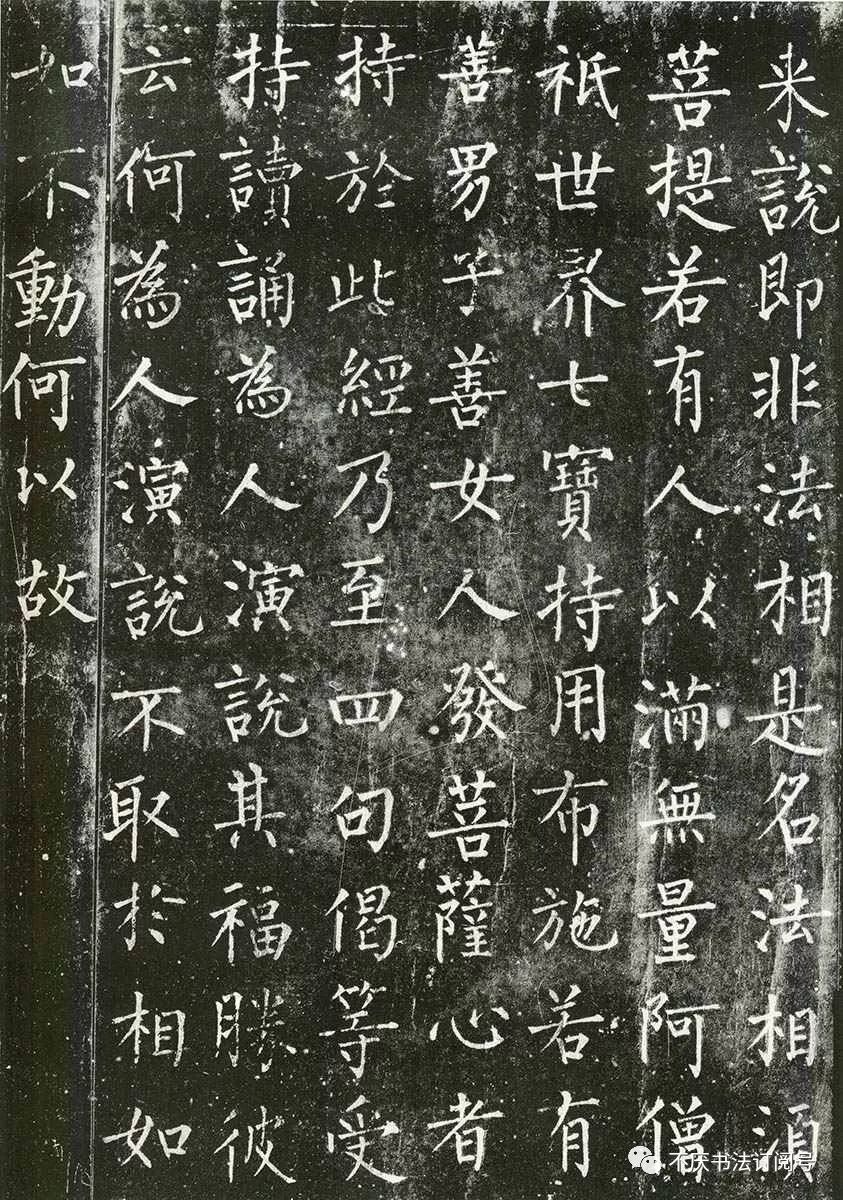 来說即非法相是名法相須
菩提若有人以滿無量阿僧
祇世界七寶持用布施若有
善男子善女人發菩薩心者
持於此經乃至四句偈等受
持讀誦為人演說其福勝彼
云何為人演說不取於相如
如不動何以故
不厌书法订阅号